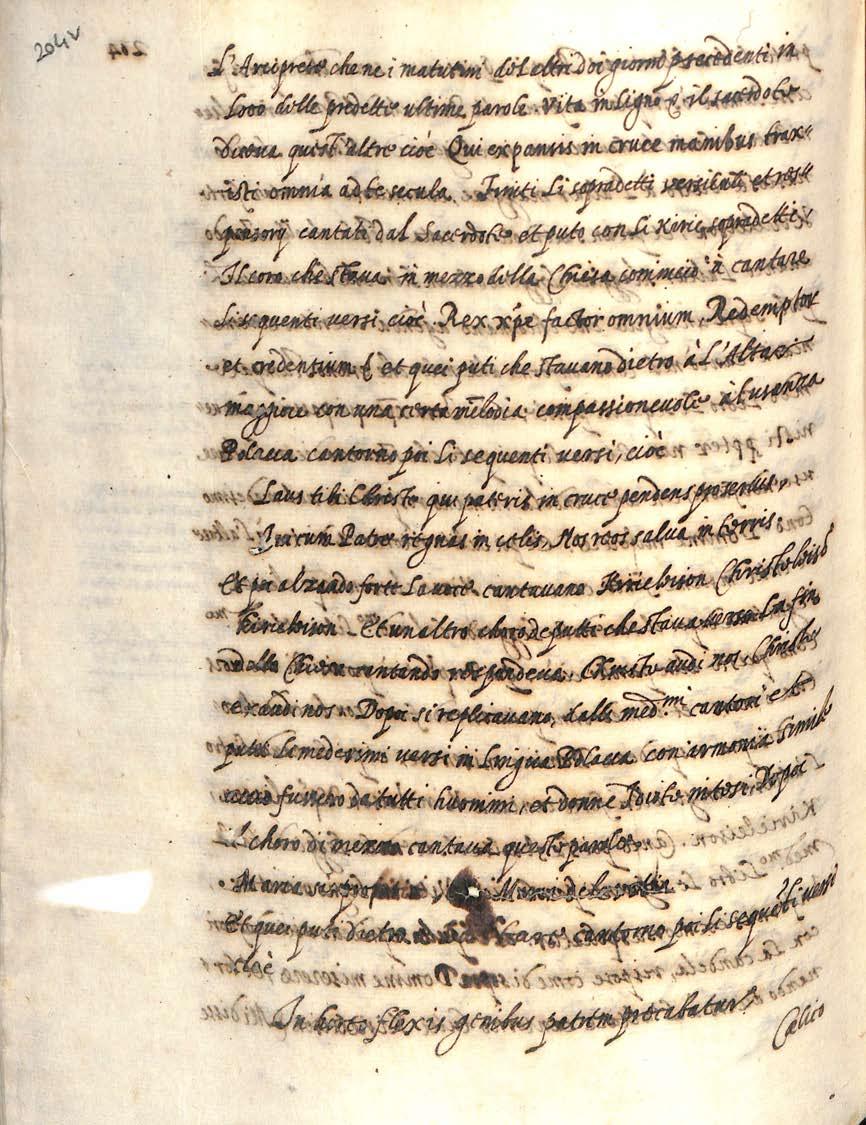 204v
L'Arciprete che ne i matutini delli altri doi giorni precedenti in
loco delle predette ultime parole. Vita in ligno &. il sacerdote
diceva quest'altre cioè Qui expansis in cruce manibus trax=
isti omnia ad te secula. Finiti li sopradetti versiculi et res=
ponsorij cantati dal Sacerdote et puto con li Kirie sopradetti,
Il coro che stava in mezzo della Chiesa cominciò à cantare
li sequenti versi cioè. Rex xpe factor omnium, Redemptor
et credentium & et quei puti che stavano dietro à L'Altar
maggiore con una certa melodia compassionevole à l'usanza
Polacca cantorno poi li sequenti versi, cioè
Laus tibi Christe qui pateris in cruce pendens pro
Qui cum Patre regnas in celis, Nos reos salva in terris.
Et poi alzando forte la voce cantavano Kirieleison Christeleisõ
Kirieleison. Et un altro choro de putti che stava verso la fin
della Chiesa cantando respondeva, Christe audi nos, Christe
exaudi nos. Dopoi si replicavano, dalli med.mi cantori et
puti li medesimi versi in lingua Polacca con armonia simile
acciò fussero da tutti huomini, et donne Idiote intesi, Dopoi
il choro di mezzo cantava queste parole
Maria
Et quei puti dietro cantorno poi li sequēti versi
cioè
In horto flexis genibus patrem precabatur
Celico